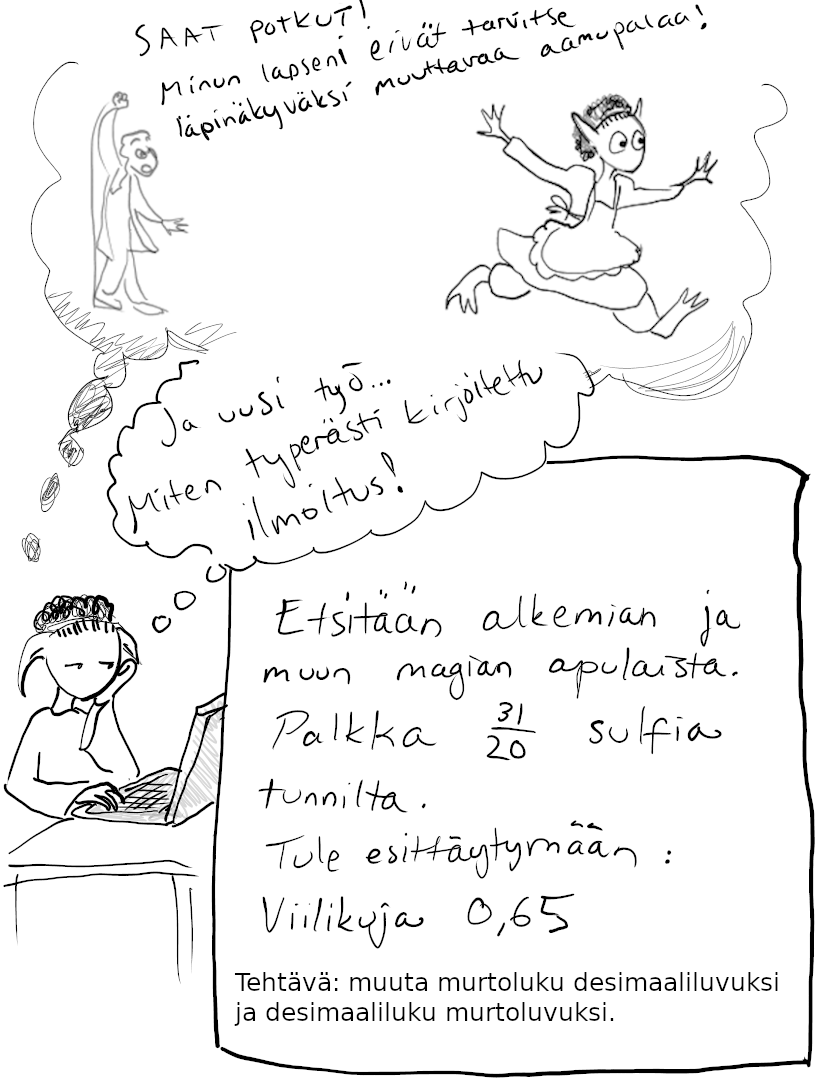 SAAT POTKUT!
Minun lapseni eivät tarvitse
läpinäkyväksi muuttavaa aamupalaa!
Ja uusi työ...
Miten typerästi kirjoitettu
ilmoitus!
Etsitään alkemian ja
muun magian apulaista.
Palkka 31/20 sulfia
tunnilta.
Tule esittäytymään:
Viilikuja 0,65
Tehtävä: muuta murtoluku desimaaliluvuksi
ja desimaaliluku murtoluvuksi.